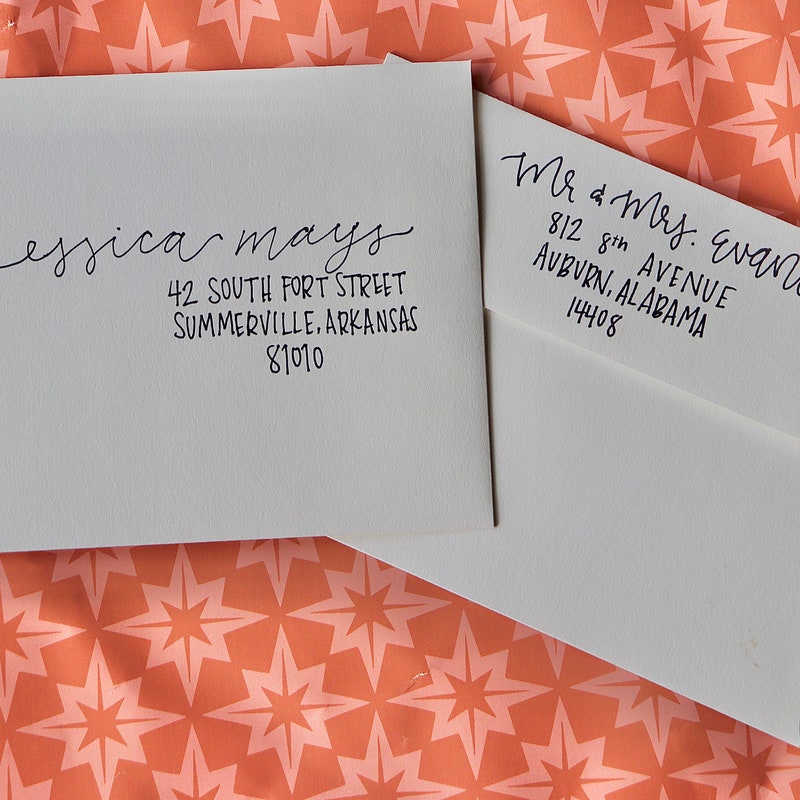 essica mays
42 SOUTH FORT STREET
SUMMERVILLE, ARKANSAS
81010
Mr & Mrs. Evans
812 8th AVENUE
AUBURN, ALABAMA
14408